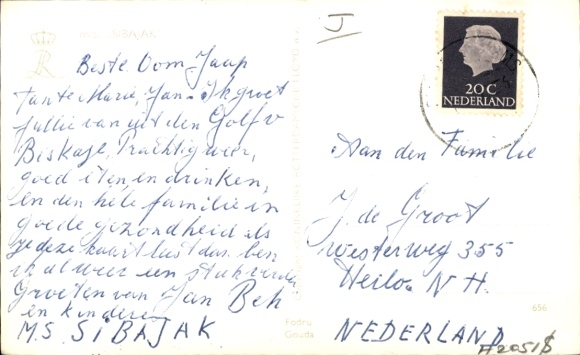 J
m.s. SIBAJAK
Beste Oom Jaap
Tante Marie, Jan. Ik groet
jullie van uit den Golf v
Biskaje, Prachtig weer,
goed eten en drinken,
en den hele familie in
goede gezondheid als
je deze kaart leest dan ben
ik al weer een stuk verder
Groeten van Jan Beh
en kinderen
M.S. SIBAJAK
20 C
NEDERLAND
Aan den Familie
J. de Groot
Westerweg 355
Heiloo N H.
NEDERLAND
Fodru
Gouda
656